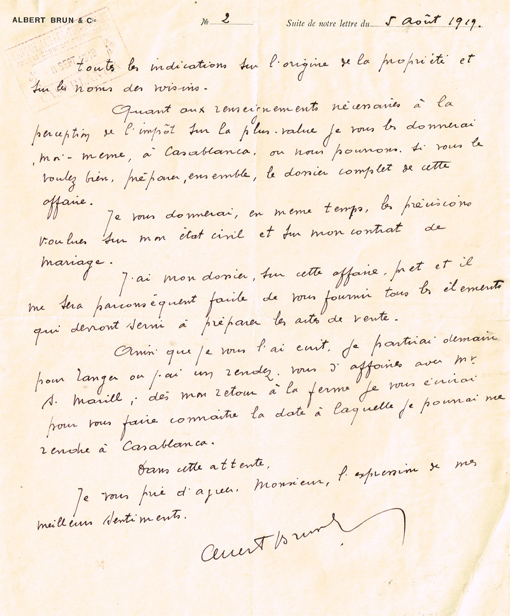 ALBERT BRUN & Cie
№ 2
Suite de notre lettre du 5 août 1919.
toutes les indications sur l'origine de la propriété et
sur les noms des voisins.
Quant aux renseignements nécessaires à la
perception de l'impôt sur la plus-value je vous les donnerai
moi-même, à Casablanca, ou nous pourrons, si vous le
voulez bien, préparer, ensemble, le dossier complet de cette
affaire.
Je vous donnerai, en meme temps, les précisions
voulues sur mon état civil et sur mon contrat de
mariage.
J'ai mon dossier, sur cette affaire, pret et il
me sera parconséquent facile de vous fournir tous les élements
qui devront servir à préparer les actes de vente.
Ainsi que je vous l'ai écrit, je partirai demain
pour Tanger ou j'ai un rendez-vous d'affaires avec Mr
S. Marill; dès mon retour à la ferme je vous écrirai
pour vous faire connaitre la date à laquelle je pourrai me
rendre à Casablanca.
Dans cette attente,
Je vous prie d'agréer, Monsieur, l'expression de mes
meilleurs sentiments.
Albert Brun